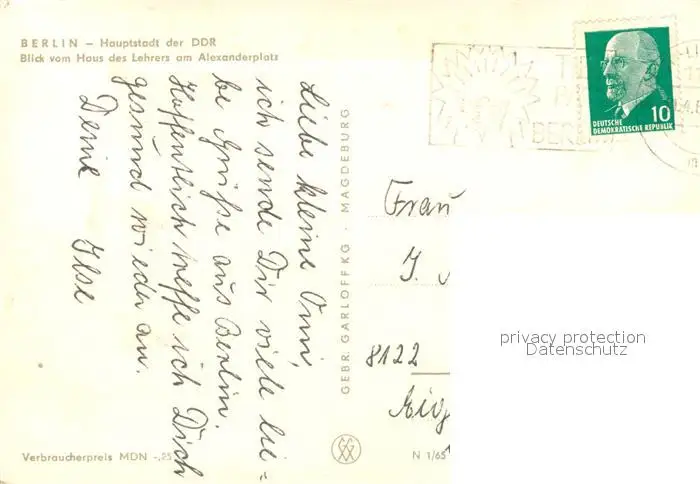 BERLIN – Hauptstadt der DDR
Blick vom Haus des Lehrers am Alexanderplatz
Liebe kleine Omi,
ich sende Dir viele lie-
be Grüße aus Berlin.
Hoffentlich treffe ich Dich
gesund wieder an.
Deine Ilse
GEBR. GARLOFF KG · MAGDEBURG
BERLIN
10
DEUTSCHE
DEMOKRATISCHE REPUBLIK
Frau
J.
8122
privacy protection
Datenschutz
Verbraucherpreis MDN -,25
N 1/65